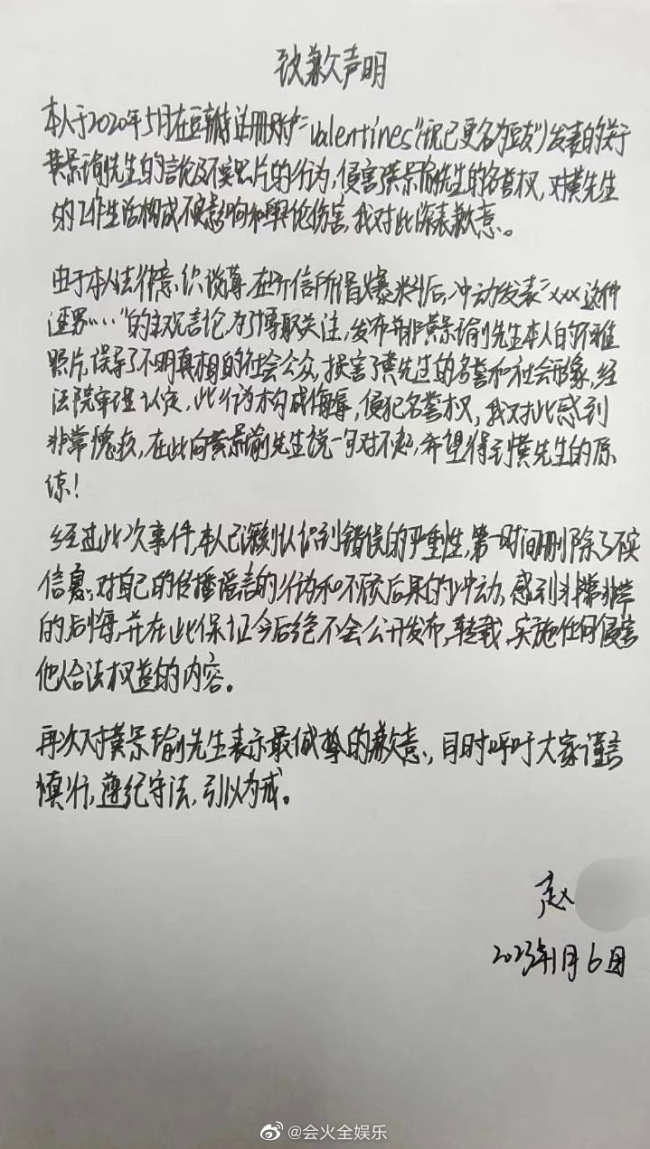 致歉声明
本人于2020年5月在豆瓣注册账户"Valentines"(现已更名为豆友)发表的关于
黄景瑜先生的言论及不实照片的行为,侵害黄景瑜先生的名誉权,对黄先生
的工作生活构成不良影响和舆论伤害,我对此深表歉意。
由于本人法律意识淡薄,在听信所谓爆料后,冲动发表"xxx这种
渣男……"的主观言论,为了博取关注,发布并非黄景瑜先生本人的不雅
照片,误导了不明真相的社会公众,损害了黄先生的名誉和社会形象,经
法院审理认定,此行为构成侮辱,侵犯名誉权,我对此感到
非常愧疚,在此向黄景瑜先生说一句对不起,希望得到黄先生的原
谅!
经过此次事件,本人已深刻认识到错误的严重性,第一时间删除了不实
信息,对自己的传播谣言的行为和不顾后果的冲动,感到非常非常
的后悔,并在此保证今后绝不会公开发布,转载,实施任何侵害
他人合法权益的内容。
再次对黄景瑜先生表示最诚挚的歉意,同时呼吁大家谨言
慎行,遵纪守法,引以为戒。
赵
2023年1月6日
@会火全娱乐